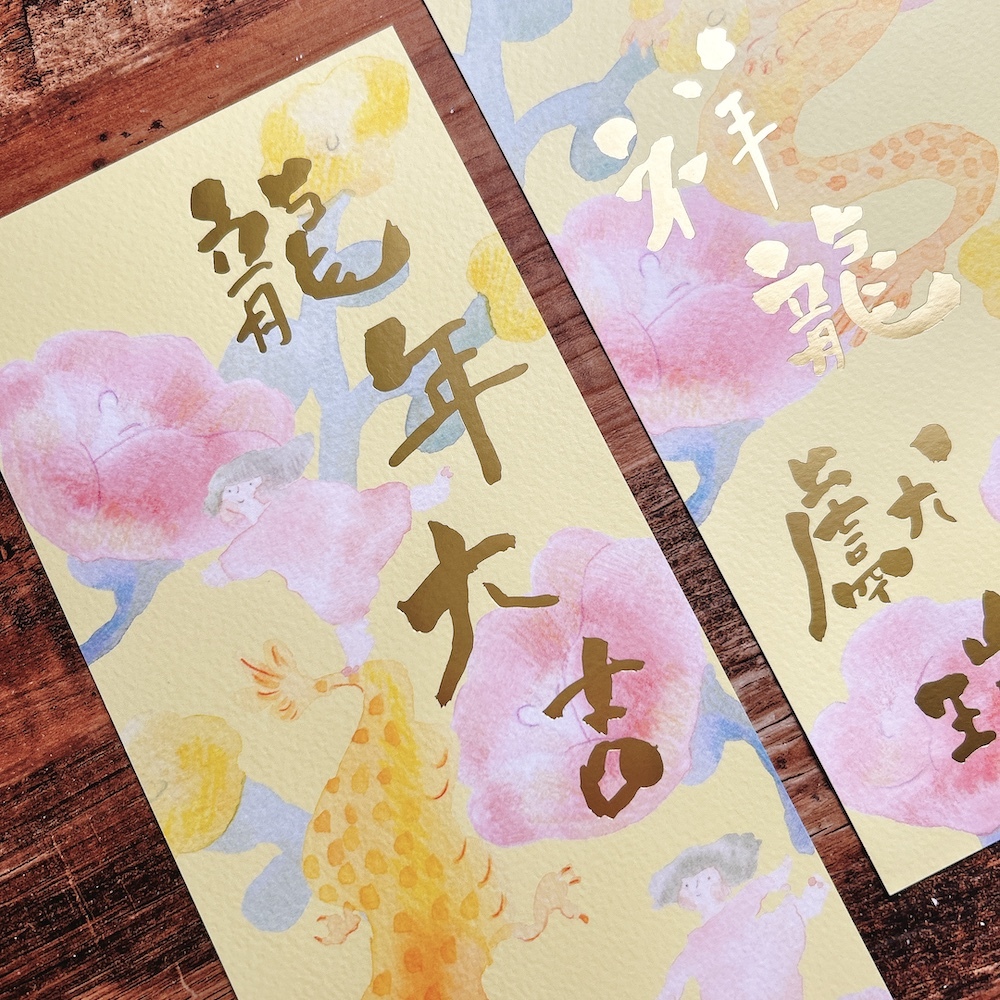 龍年大吉
祥龍獻瑞